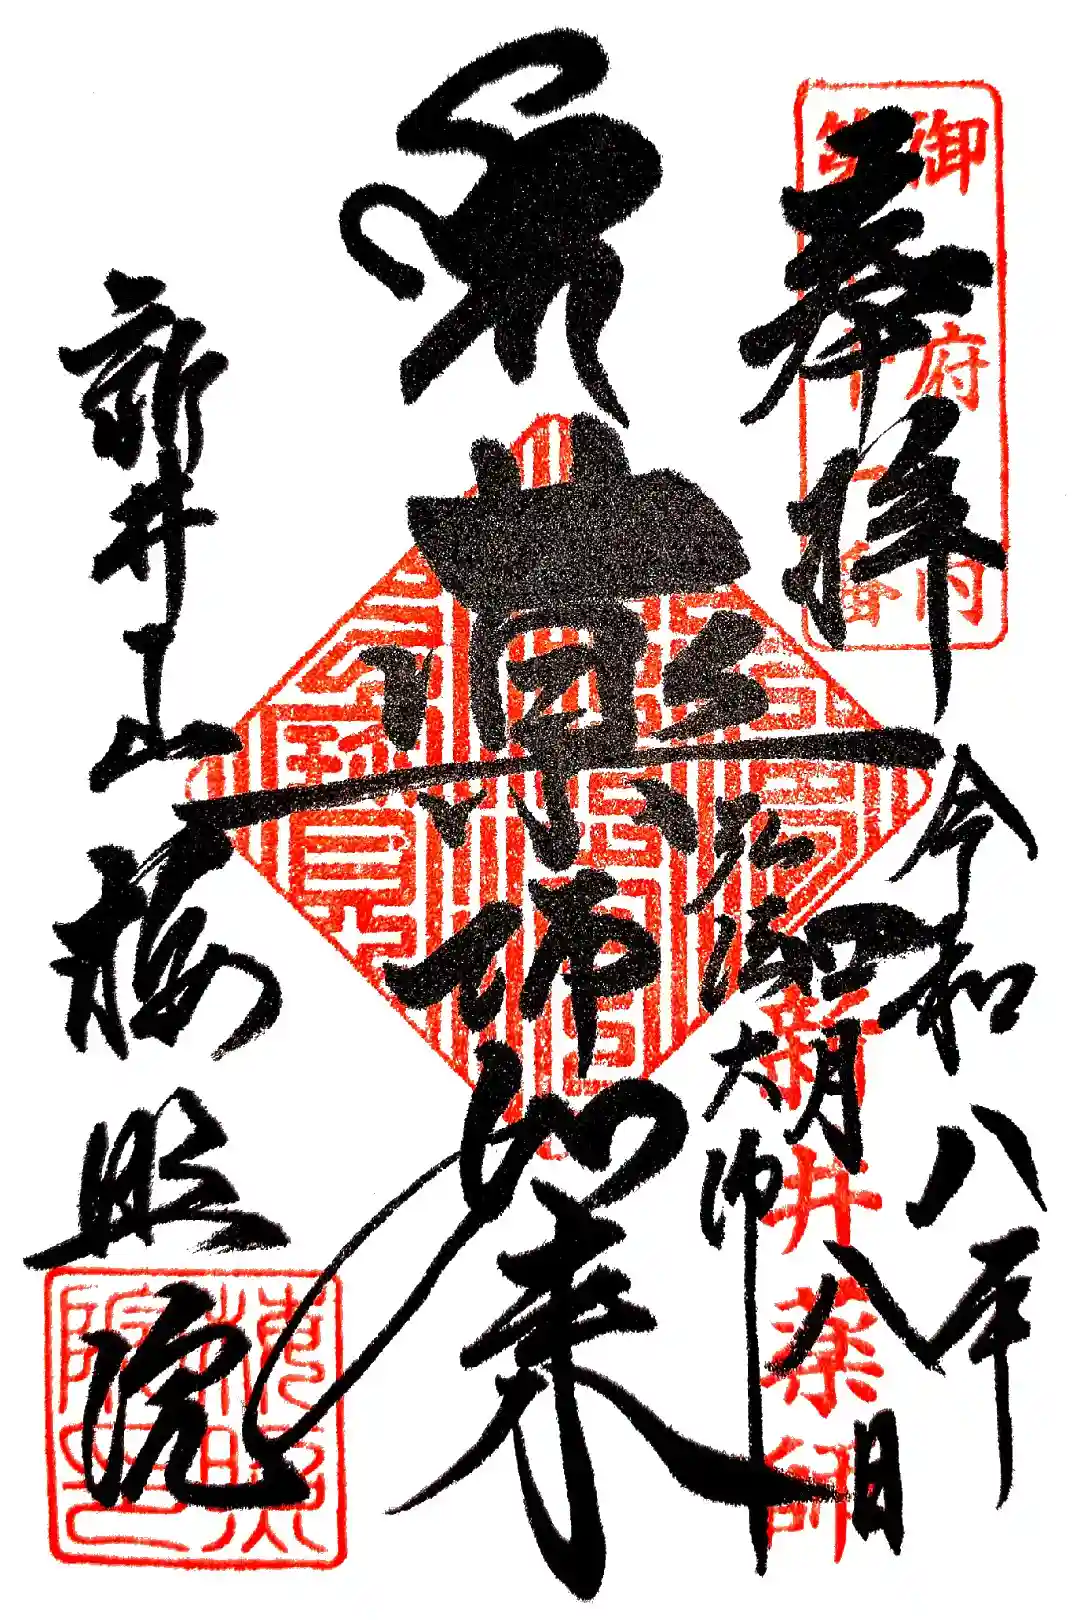 奉拝
御府内
番
令和八年
四月八日
新井薬師
薬師如来
弘法大師
新井山
梅照院